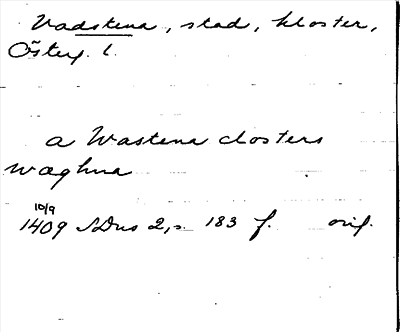 Vadstena, stad, kloster,
Österg. l.
a Wastena closters
wæghna
10/9
1409 SDns 2, s. 183 f. orig.